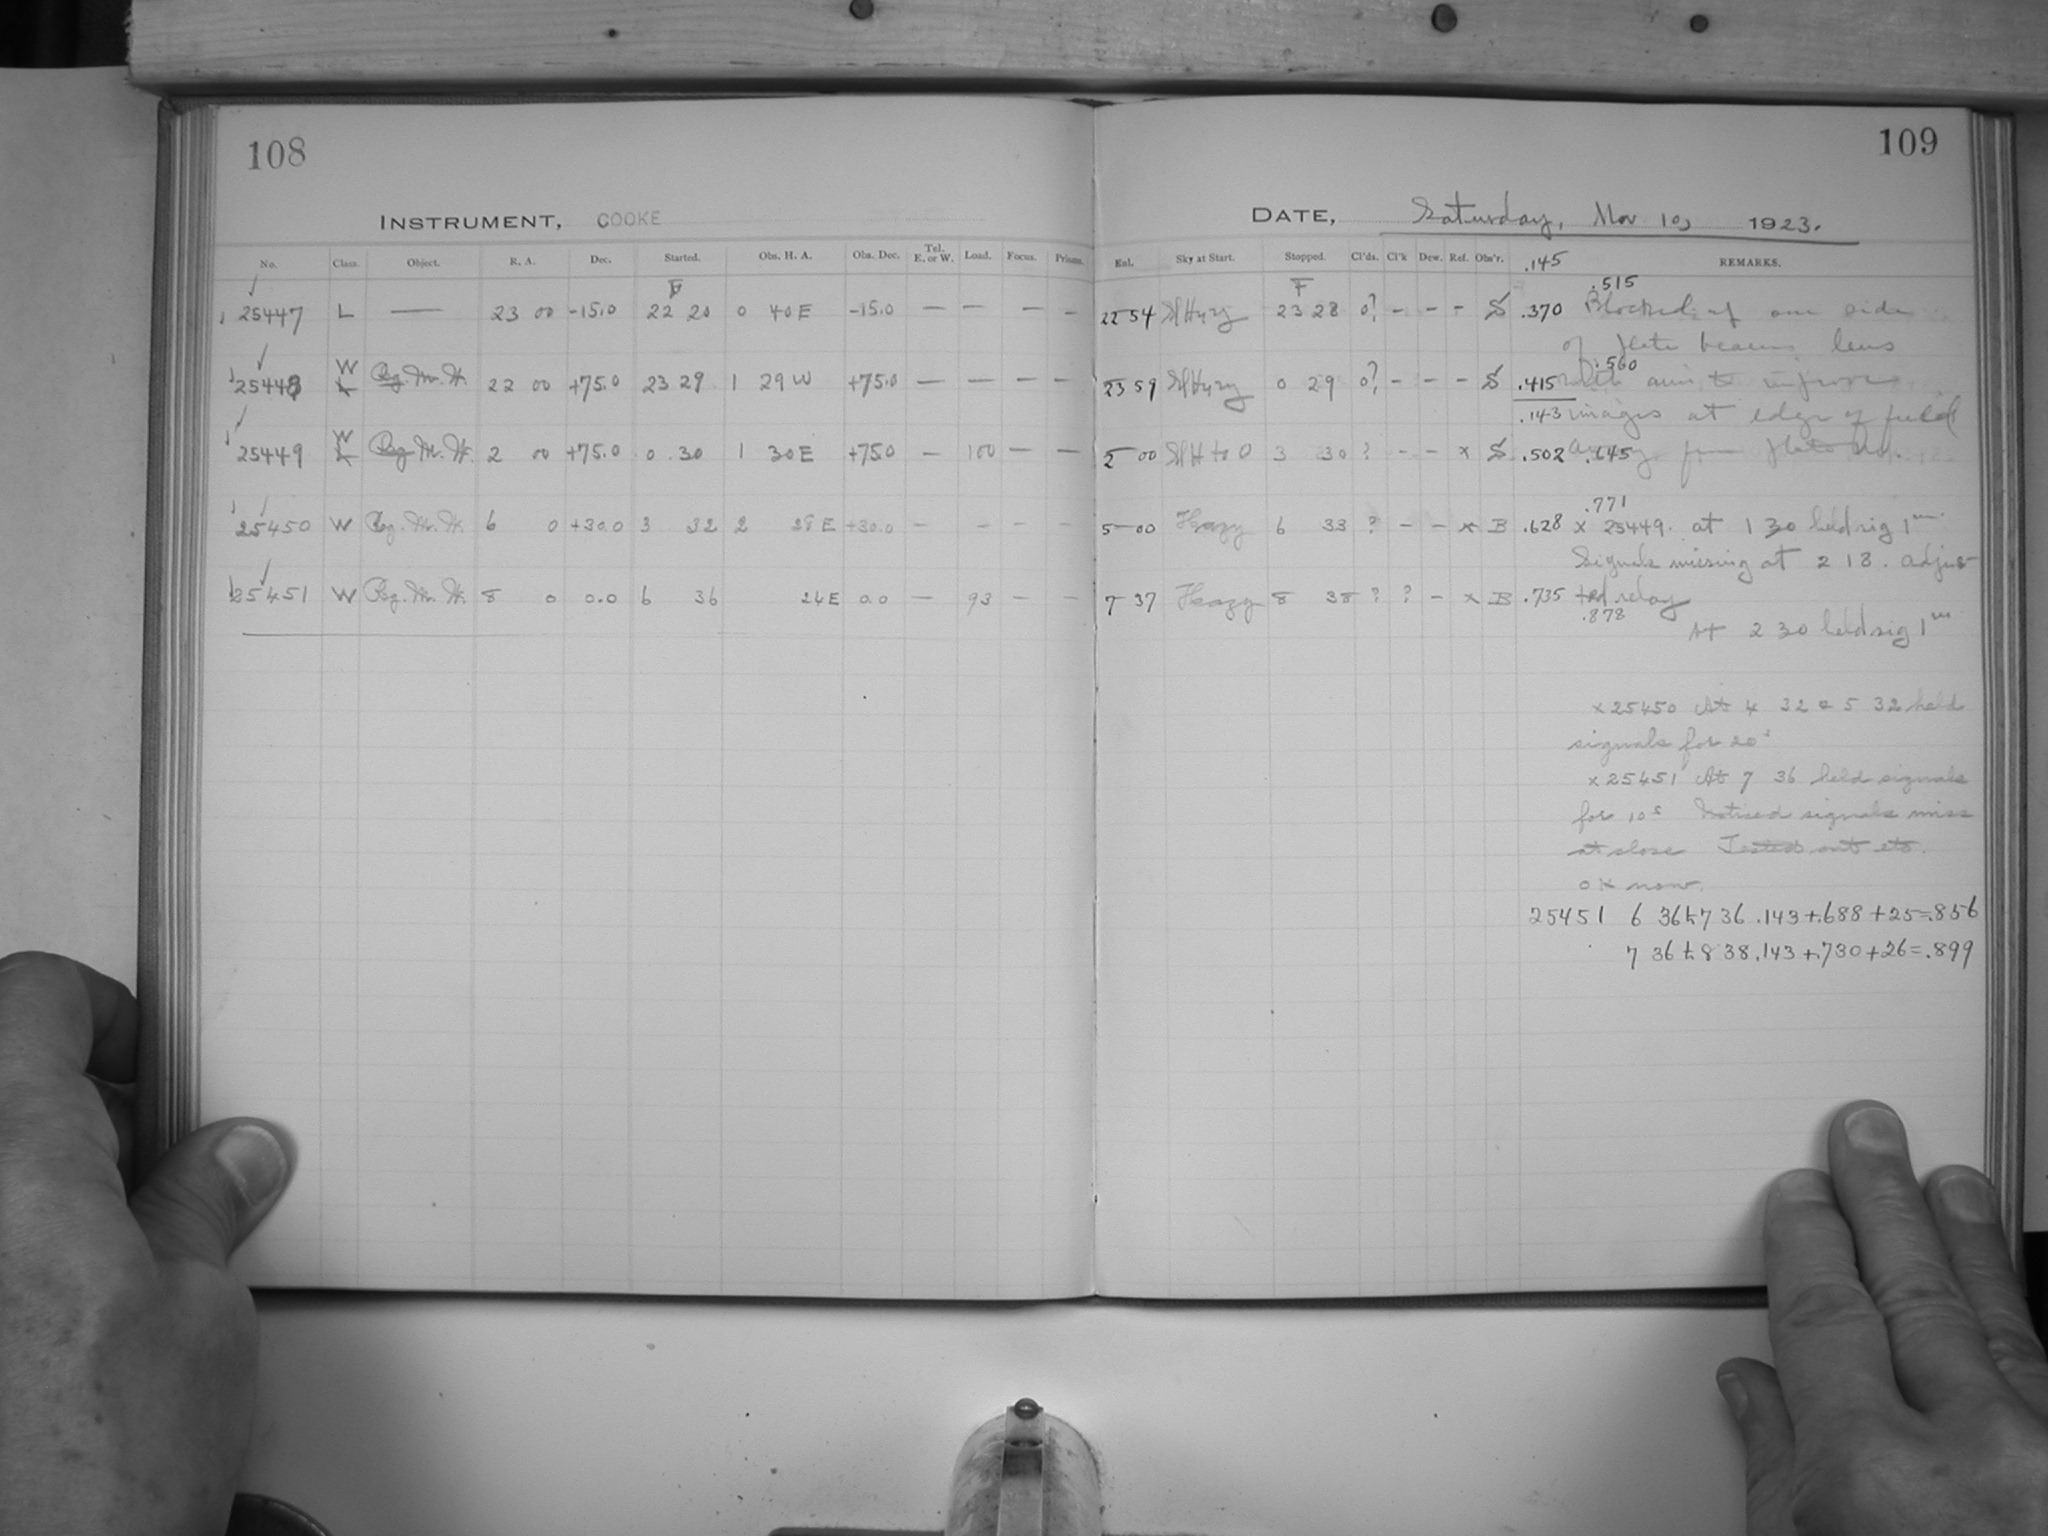 108
INSTRUMENT, COOKE
No. Class. Object. R. A. Dec. Started. Obs. H. A. Obs. Dec. Tel. E. or W. Load. Focus. Prisms.
F
25447 L — 23 00 -15.0 22 20 0 40 E -15.0 — — — —
W
25448 L Reg. M. W. 22 00 +75.0 23 29 1 29 W +75.0 — — — —
W
25449 L Reg. M. W. 2 00 +75.0 0 30 1 30 E +75.0 — 100 — —
25450 W Reg. M. W. 6 0 +30.0 3 32 2 28 E +30.0 — — — —
25451 W Reg. M. W. 8 0 0.0 6 36 24 E 0.0 — 93 — —
109
DATE, Saturday, Nov 10, 1923.
Enl. Sky at Start. Stopped. Cl'ds. Cl'k Dew. Ref. Obs'r. .145 REMARKS.
F .515
22 54 Sl Hazy 23 28 0? - - - S .370 Blocked of one side
of plate beam lens
.560
23 59 Sl Hazy 0 29 0? - - - S .415 with aim to improve
.143 images at edge of field
2 00 3 30 ? - - x S .502 .645 away from plate
.771
5 00 Hazy 6 33 ? - - x B .628 x 25449. at 1 30 held sig 1m
Signals missing at 2 18. adjus-
7 37 Hazy 8 38 ? ? - x B .735 ted relay
.878
At 2 30 held sig 1m
x 25450 At 4 32 & 5 32 held
signals for 20s
x 25451 At 7 36 held signals
for 10s Noticed signals miss
at close Tested out etc.
OK now.
25451 6 36 to 7 36 .143+.688+25=.856
7 36 to 8 38 .143+.730+26=.899